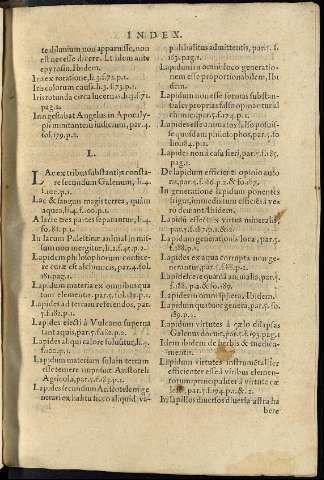 INDEX.
te diluvium non apparuisse, non
est necesse dicere. Et idem ante
Ibidem.
Iris ex rotatione, li.3.f.72.p.1.
Iris colorum causa.li.3.f.73.p.1.
Iris rotunda circa lucernas li.3.f.71.
pag.1.
Iris gestabat Angelus in Apocaly-
psi minitantem iusticiam, par.4.
fol.179.p.1.
L.
LAc ex tribus substantijs consta-
re secundum Galenum, li.4.
f.100.p.1.
Lac & sanguis magis terrea, quàm
aquea, li.4.f.100.p.1.
A lacte tres partes separantur, li.4.
fo.81.p.1.
In lacum Palestinæ animal in mis-
sum non mergitur, li.2.f.42.p.2.
Lapidem philosophorum confice-
re curæ est alchimicis, par.4.fol.
181.pag.1.
Lapidum materia ex omnibus qua
tuor elementis, par.5.fo.182.p.1.
Lapides ad terram referendos, par.
5.f.182.p.1.
Lapides eiecti à Vulcano superna
tant aquis, par.5.f.182.p.1.
Lapides aliqui calore solvuntur, li.4.
f.100.p.1.
Lapidum materiam solam terram
esse temere imposuit Aristoteli
Agricola, par.5.f.183.p.1.
Lapides secundum Aristotelem ge
nerari ex halitu sicco aliquid, va-
puli halitus admittentis, par.5.f.
183.pag.1.
Lapidum in omni loco generatio-
nem esse proportionabilem, Ibi
dem.
Lapidum non esse formas substan-
tiales proprias falso opinatur Al
chimic', par.5.f.174.p.1.
Lapides esse animatos falso posuis-
se quosdam philosophos, par.5.fo
lio.184.p.1.
Lapides non à casu fieri, par.5.f.185.
pag.1.
De lapidum efficienti opinio aulto
ris, par.5.f.186.p.2.& fo.187.
In generatione lapidum ponentis
signum, immediatum efficiēs à vero
deviant Ibidem.
Lapidum efficiēs virtus mineralis,
par.5.f.187.p.1.& 2.
Lapidum generationis loca, par.5.
f.188.p.1.
Lapides ex aqua corrupta non ge-
nerantur, par.5.f.188.p.1.
Lapides ceræ quædā animalis, par.5.
f.188.p.2.& fo.189.
Lapidem omni sphæra, Ibidem.
Lapidum quatuor genera, par.5.fo.
190.p.1.
Lapidum virtutes à cælo dilapsas
Galenus docuit, par.5.f.193.pag.1
Idem ibidem de herbis & medica-
mentis.
Lapidum virtutes instrumētaliter
efficienter esse à viribus elemen-
torum principaliter à virtute cæ
lesti, fo.5.f.194.pa.&.2.
In lapillos diversos diversa astra ha
bere